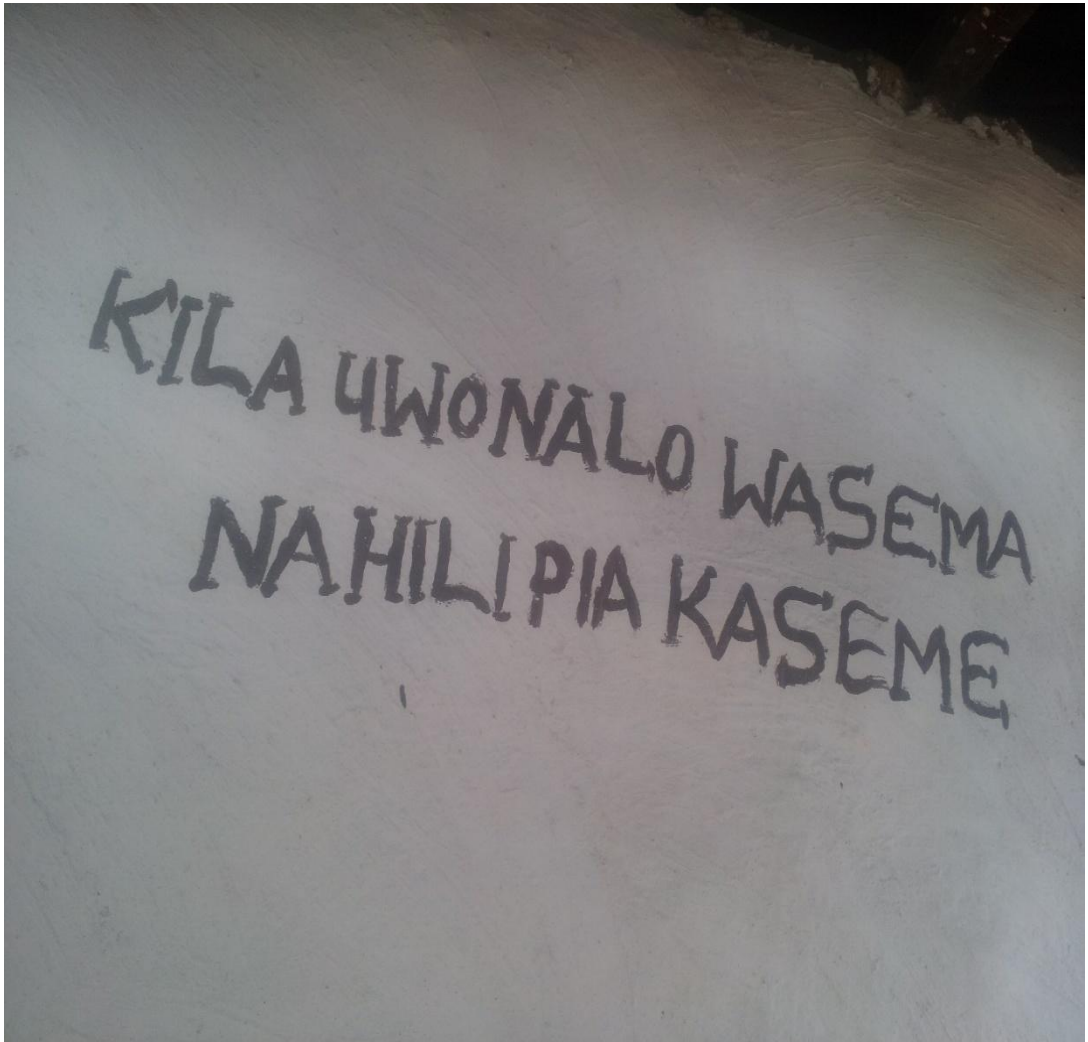 KILA UWONALO WASEMA
NAHILI PIA KASEME